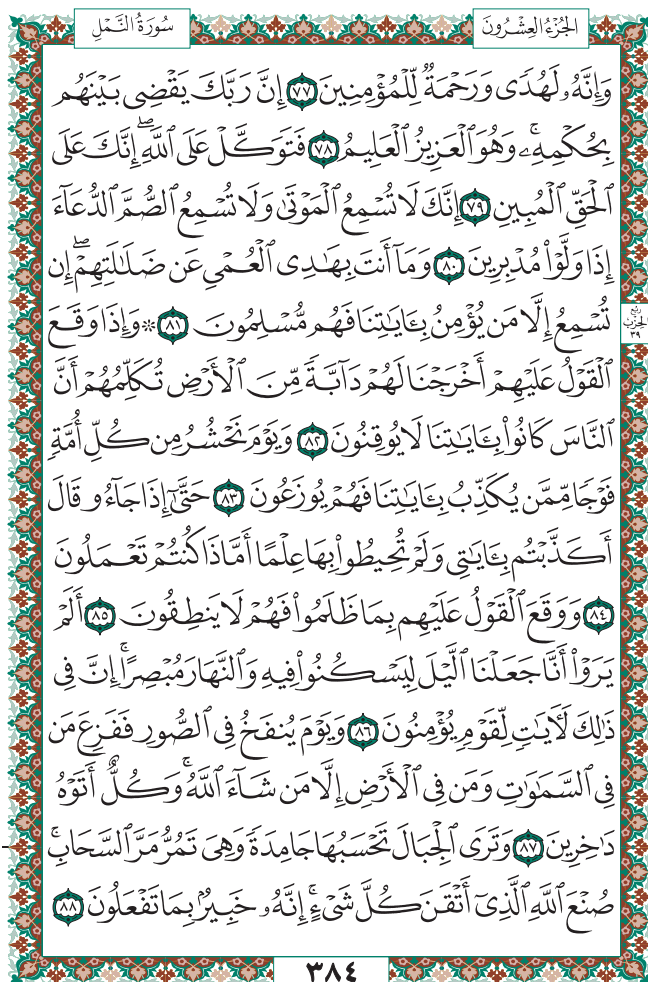 الجُزْءُ العِشْرُونَ
سُورَةُ النَّمْلِ
وَإِنَّهُۥ لَهُدٗى وَرَحۡمَةٞ لِّلۡمُؤۡمِنِينَ ٧٧ إِنَّ رَبَّكَ يَقۡضِي بَيۡنَهُم
بِحُكۡمِهِۦۚ وَهُوَ ٱلۡعَزِيزُ ٱلۡعَلِيمُ ٧٨ فَتَوَكَّلۡ عَلَى ٱللَّهِۖ إِنَّكَ عَلَى
ٱلۡحَقِّ ٱلۡمُبِينِ ٧٩ إِنَّكَ لَا تُسۡمِعُ ٱلۡمَوۡتَىٰ وَلَا تُسۡمِعُ ٱلصُّمَّ ٱلدُّعَآءَ
إِذَا وَلَّوۡاْ مُدۡبِرِينَ ٨٠ وَمَآ أَنتَ بِهَٰدِي ٱلۡعُمۡيِ عَن ضَلَٰلَتِهِمۡۖ إِن
تُسۡمِعُ إِلَّا مَن يُؤۡمِنُ بِـَٔايَٰتِنَا فَهُم مُّسۡلِمُونَ ٨١ ۞وَإِذَا وَقَعَ
ربع الحزب ٣٩
ٱلۡقَوۡلُ عَلَيۡهِمۡ أَخۡرَجۡنَا لَهُمۡ دَآبَّةٗ مِّنَ ٱلۡأَرۡضِ تُكَلِّمُهُمۡ أَنَّ
ٱلنَّاسَ كَانُواْ بِـَٔايَٰتِنَا لَا يُوقِنُونَ ٨٢ وَيَوۡمَ نَحۡشُرُ مِن كُلِّ أُمَّةٖ
فَوۡجٗا مِّمَّن يُكَذِّبُ بِـَٔايَٰتِنَا فَهُمۡ يُوزَعُونَ ٨٣ حَتَّىٰٓ إِذَا جَآءُو قَالَ
أَكَذَّبۡتُم بِـَٔايَٰتِي وَلَمۡ تُحِيطُواْ بِهَا عِلۡمًا أَمَّاذَا كُنتُمۡ تَعۡمَلُونَ
٨٤ وَوَقَعَ ٱلۡقَوۡلُ عَلَيۡهِم بِمَا ظَلَمُواْ فَهُمۡ لَا يَنطِقُونَ ٨٥ أَلَمۡ
يَرَوۡاْ أَنَّا جَعَلۡنَا ٱلَّيۡلَ لِيَسۡكُنُواْ فِيهِ وَٱلنَّهَارَ مُبۡصِرًاۚ إِنَّ فِي
ذَٰلِكَ لَأٓيَٰتٖ لِّقَوۡمٖ يُؤۡمِنُونَ ٨٦ وَيَوۡمَ يُنفَخُ فِي ٱلصُّورِ فَفَزِعَ مَن
فِي ٱلسَّمَٰوَٰتِ وَمَن فِي ٱلۡأَرۡضِ إِلَّا مَن شَآءَ ٱللَّهُۚ وَكُلٌّ أَتَوۡهُ
دَٰخِرِينَ ٨٧ وَتَرَى ٱلۡجِبَالَ تَحۡسَبُهَا جَامِدَةٗ وَهِيَ تَمُرُّ مَرَّ ٱلسَّحَابِۚ
صُنۡعَ ٱللَّهِ ٱلَّذِيٓ أَتۡقَنَ كُلَّ شَيۡءٍۚ إِنَّهُۥ خَبِيرُۢ بِمَا تَفۡعَلُونَ ٨٨
٣٨٤